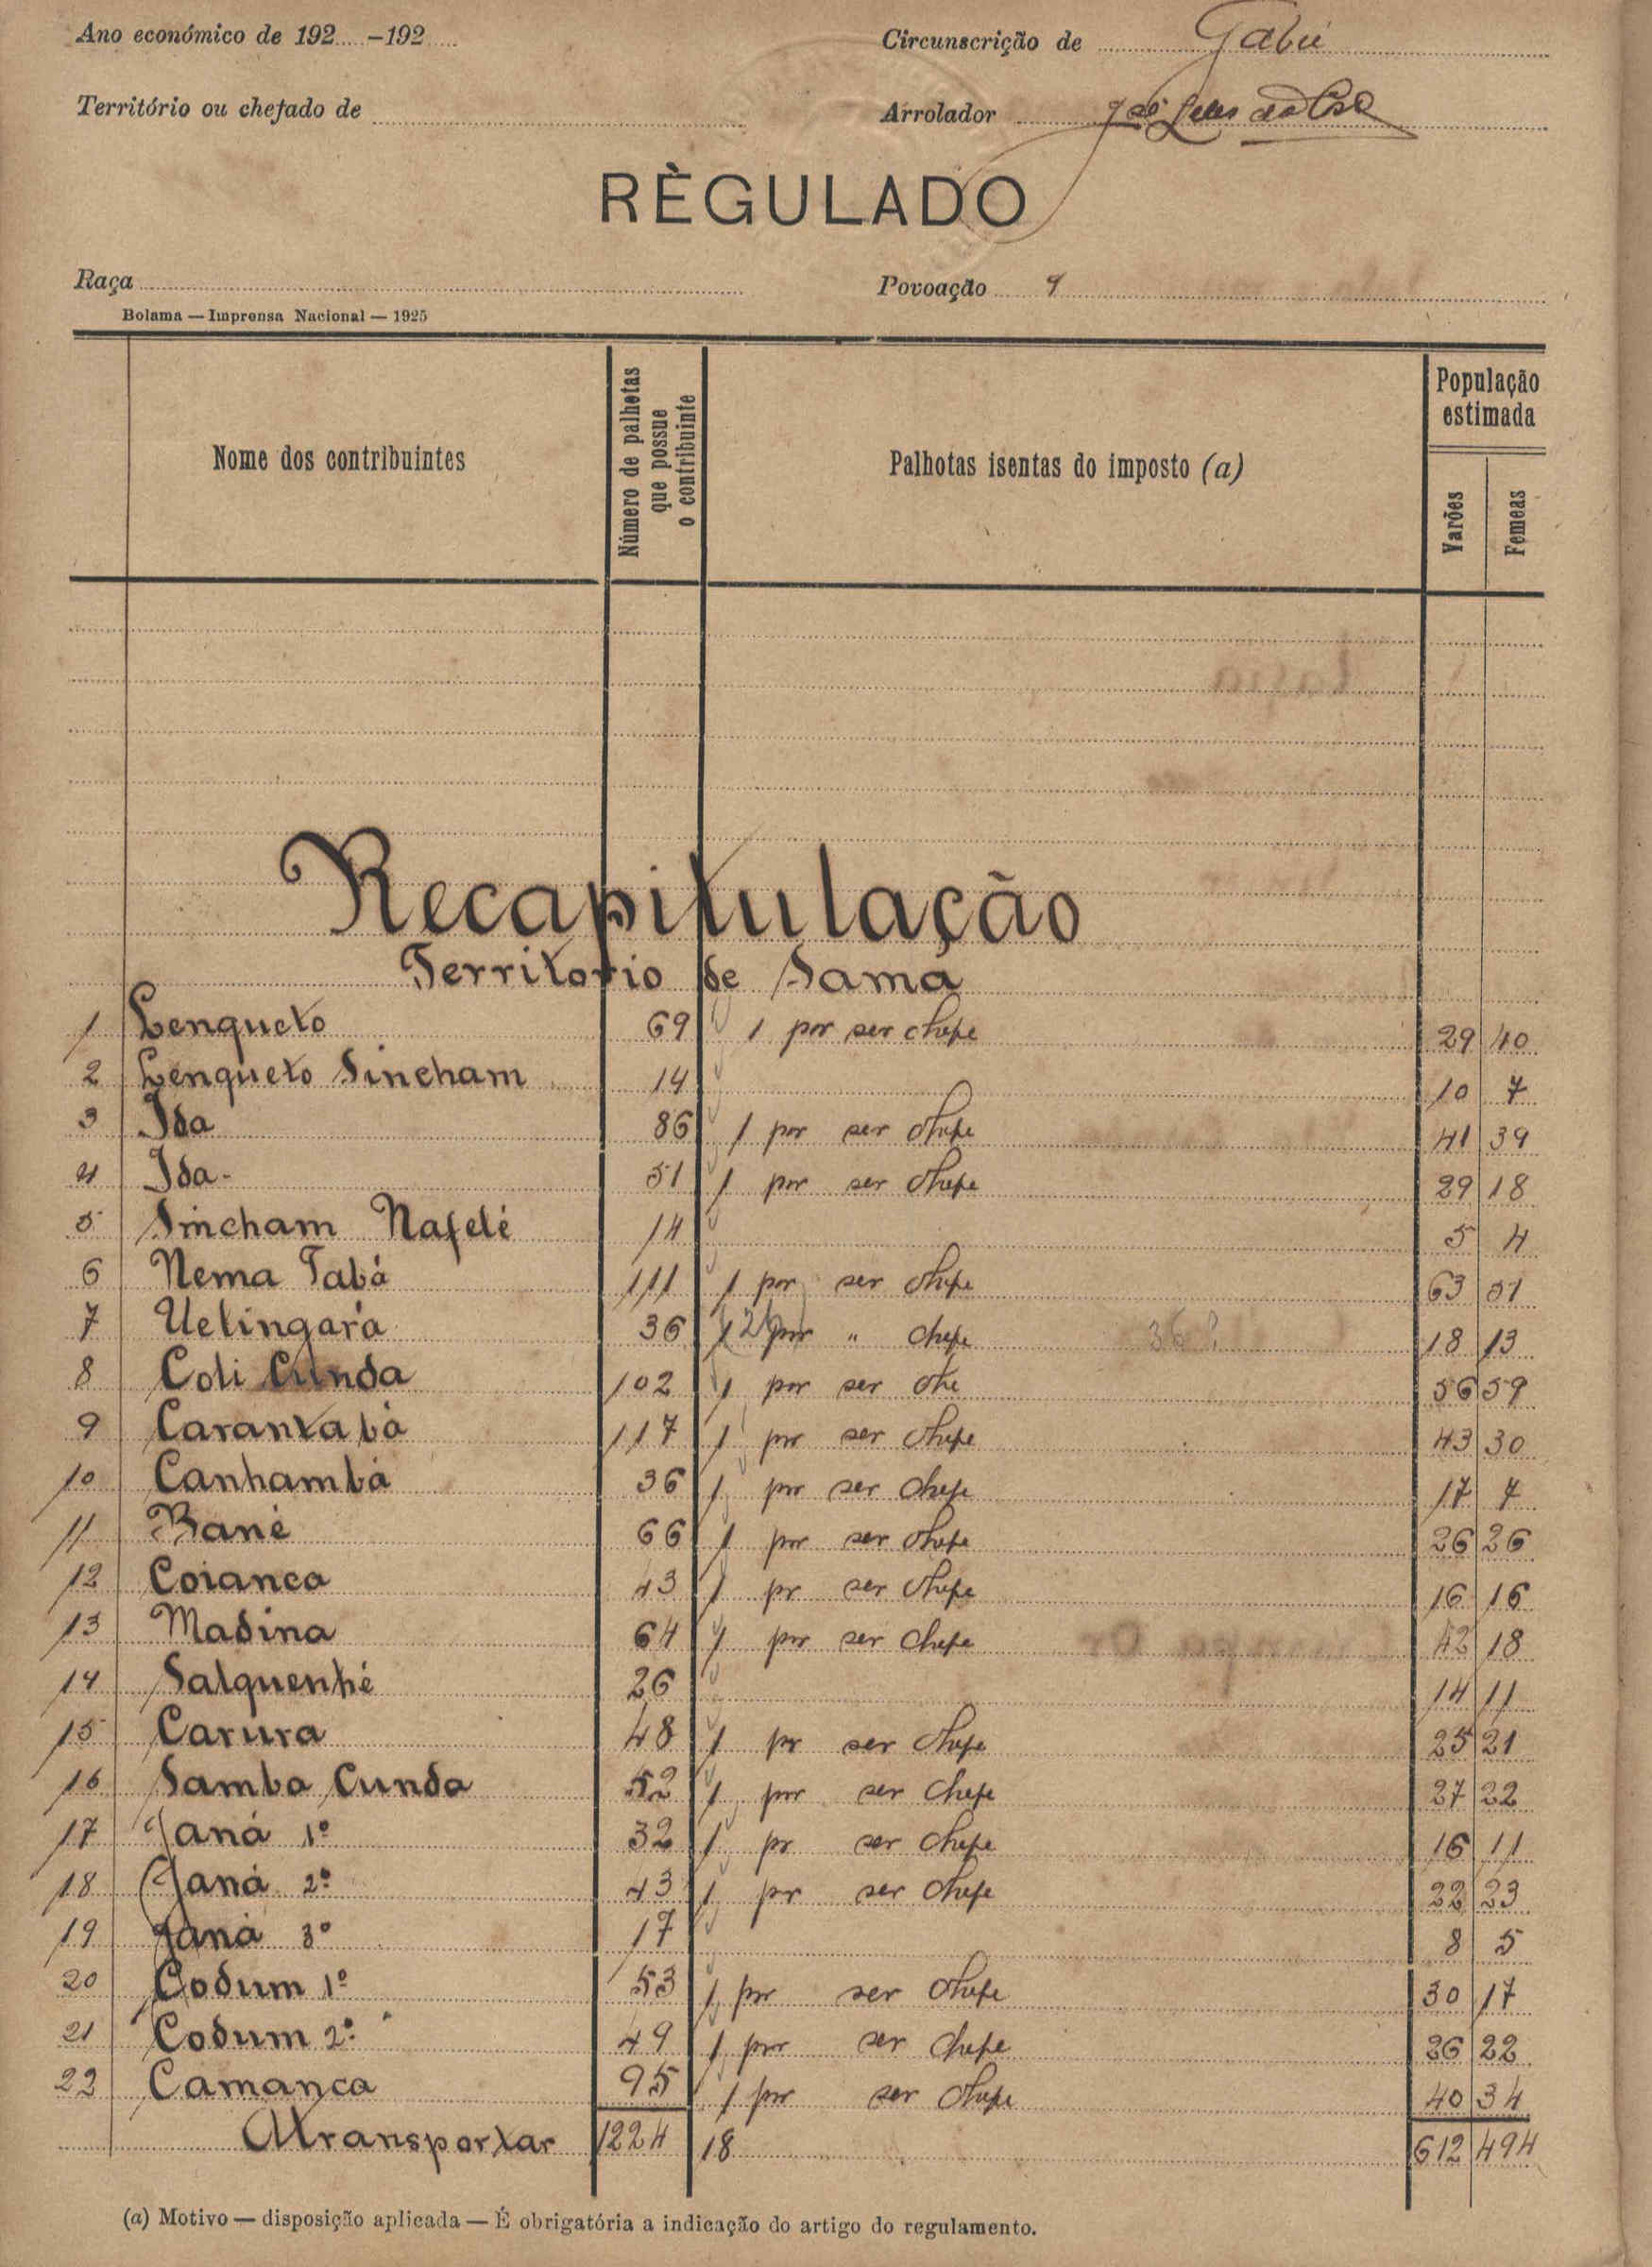 Ano económico de 192.....-192.....
Circunscrição de Gabú
Território ou chefado de
Arrolador
RÈGULADO
Raça
Povoação 9
Bolama — Imprensa Nacional — 1925
Nome dos contribuintes
Número de palhotas que possue o contribuinte
Palhotas isentas do imposto (a)
População estimada
Varões
Femeas
Recapitulação
Territorio de Sama
1 Lenqueto 69 1 por ser chefe 29 40
2 Lenqueto Sincham 14 10 7
3 Ida 86 1 por ser chefe 41 39
4 Ida 51 1 por ser chefe 29 18
5 Sincham Nafelé 14 5 4
6 Nema Tabá 111 1 por ser chefe 63 51
7 Uelingará 36 1 por " chefe 36? 18 13
8 Coli Cunda 102 1 por ser che 56 59
9 Carantabá 117 1 por ser chefe 43 30
10 Canhambá 36 1 por ser chefe 17 7
11 Bané 66 1 por ser chefe 26 26
12 Coianca 43 1 pr ser chefe 16 16
13 Madina 64 1 por ser chefe 42 18
14 Salquenhé 26 14 11
15 Carura 48 1 pr ser chefe 25 21
16 Samba Cunda 52 1 por ser chefe 27 22
17 Janá 1º 32 1 pr ser chefe 16 11
18 Janá 2º 43 1 pr ser chefe 22 23
19 Janá 3º 17 8 5
20 Codum 1º 53 1 por ser chefe 30 17
21 Codum 2º 49 1 por ser chefe 36 22
22 Camanca 95 1 por ser chefe 40 34
Atransportar 1224 18 612 494
(a) Motivo — disposição aplicada — É obrigatória a indicação do artigo do regulamento.